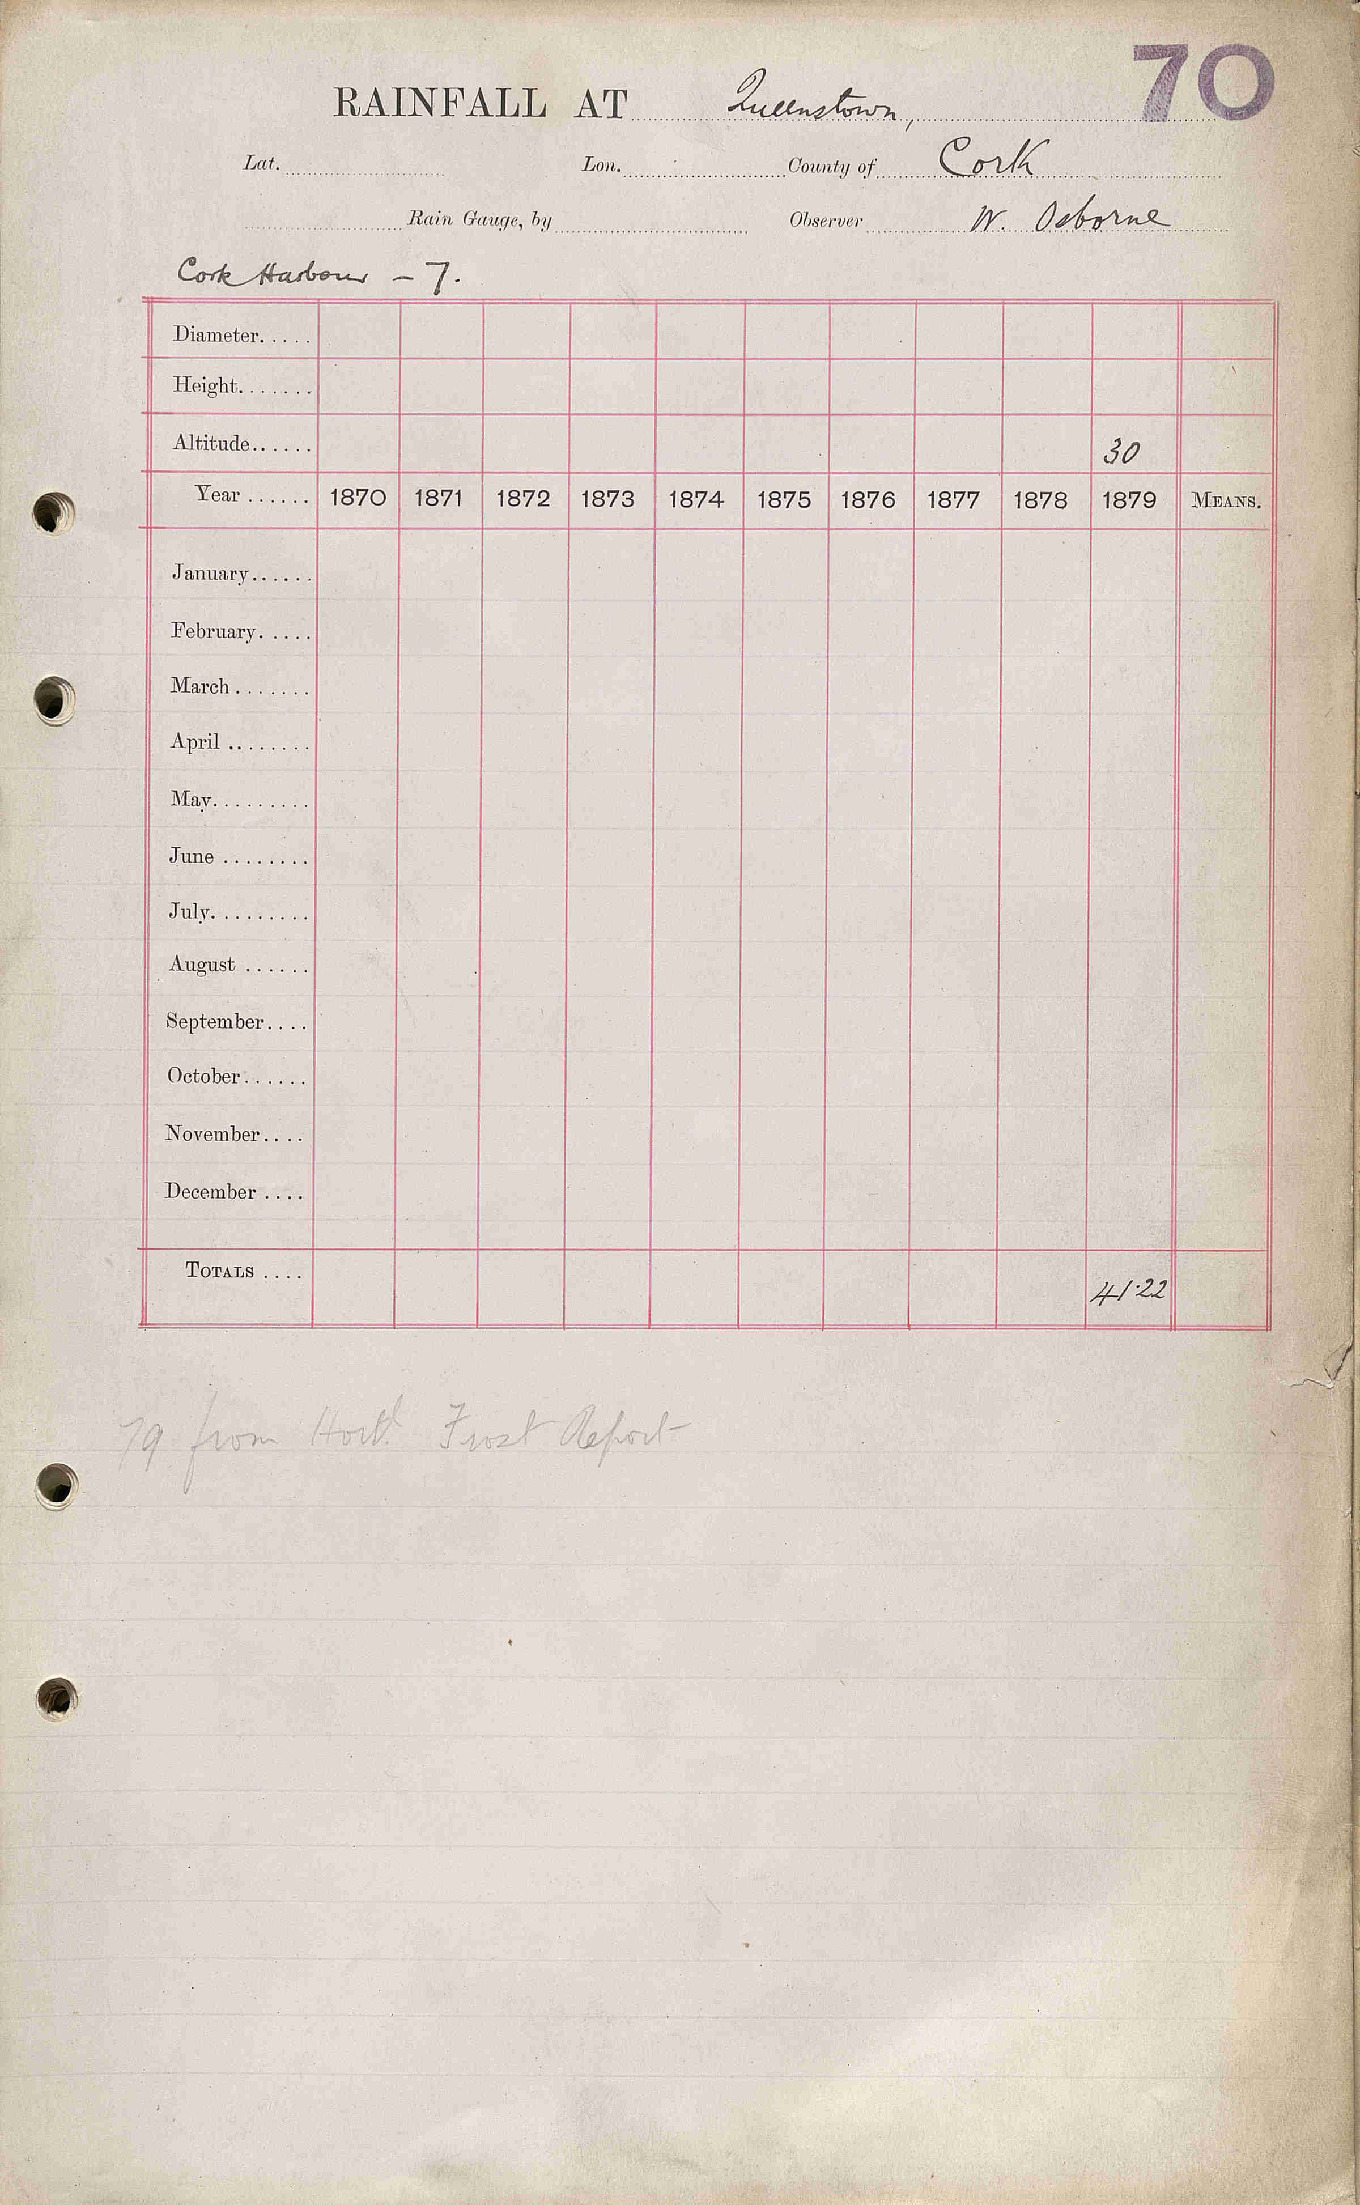 70
RAINFALL AT Queenstown,
Lat. Lon. County of Cork
Rain Gauge, by Observer W. Osborne
Cork Harbour - 7.
Diameter.....
Height.......
Altitude...... 30
Year ...... 1870 1871 1872 1873 1874 1875 1876 1877 1878 1879 MEANS.
January......
February.....
March .......
April ........
May.........
June ........
July.........
August ......
September....
October......
November....
December ....
TOTALS .... 41.22
79 from Hort! Frost Report